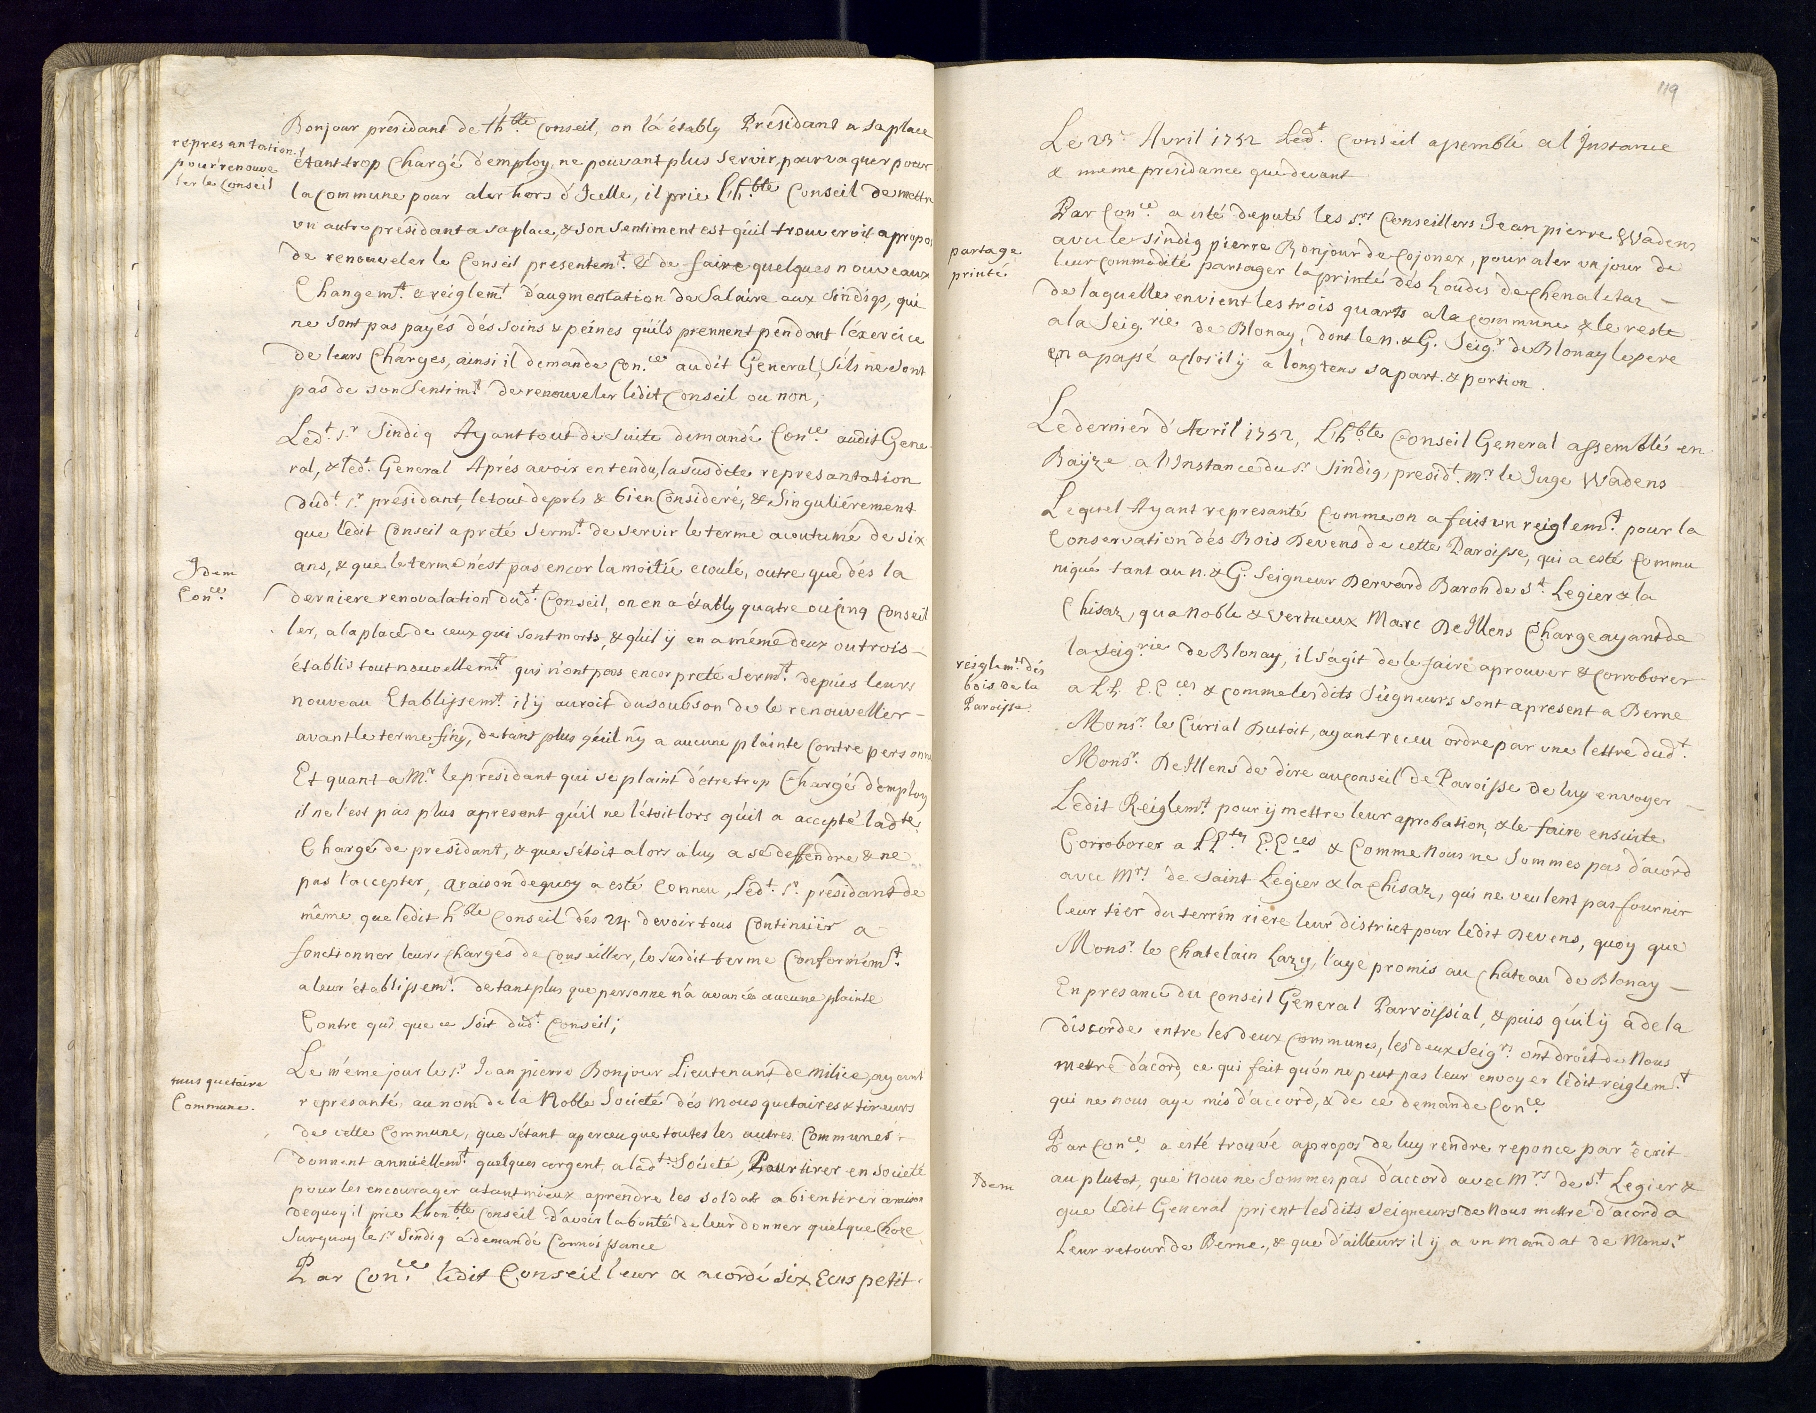 represantation
pour renouve
ler le Conseil
Bonjour présidant de Lh.ble Conseil, on la étably Présidant a sa place
étant trop Chargé d'employ, ne pouvant plus servir, pour vaquer pour
la Commune pour aler hors d'Icelle, il prie Lh.ble Conseil de mettre
un autre présidant a sa place, & son sentiment est qu'il trouveroit apropos
de renouveler le Conseil presentem.t & de faire quelques nouveaux
Changem.t & reiglem.t d'augmentation de Salaire aux Sindiqs, qui
ne sont pas payés dés soins & peines qu'ils prennent pendant l'éxercice
de leurs Charges, ainsi il demande Con.ce audit General, s'ils ne sont
pas de son Sentim.t de renouveler ledit Conseil ou non,
Led.t s.r Sindiq Ayant tout de Suite demandé Con.ce audit Gene-
ral, & led.t General Aprés avoir entendu, la susdite represantation
dud.t s.r présidant, le tout deprés & bien Consideré, & Singuliérement
que ledit Conseil a preté serm.t de servir le terme acoutumé de six
Idem
Con.ce
ans, & que le terme n'est pas encor la moitié ecoulé, outre que dés la
derniere renovalation dud.t Conseil, on en a étably quatre ou cinq Conseil
ler, a la place de ceux qui sont morts, & qu'il ÿ en a méme deux ou trois
établis tout nouvellem.t qui n'ont pas encor preté serm.t depuis leurs
nouveau Etablissem.t il ÿ auroit du soubson de le renouveller
avant le terme finy, de tant plus qu'il nÿ a aucune plainte Contre personne
Et quant a M.r le présidant qui se plaint d'étre trop Chargé d'employ
il ne l'est pas plus apresent qu'il ne l'étoit lors qu'il a accepté lad.te
Charge de president, & que s'étoit alors a luy a se deffendre & ne
pas l'accepter, a raison dequoy a esté Connu, Led.t s.r présidant de
même que ledit h.ble Conseil dés 24 devoir tous Continuër a
fonctionner leurs charges de Conseiller, le susdit terme Conformém.t
a leur établissem.t de tant plus que personne n'a avancé aucune plainte
Contre qui que ce soit dud.t Conseil;
mousquetaire
Commune.
Le méme jour le s.r Jean pierre Bonjour Lieutenant de milice, ayant
represanté, au nom de la Noble Societé dés mousquetaires & tireurs
de celle Commune, que s'étant aperceu que toutes les autres Communes
donnent annüellem.t quelques argent a lad.te Societé, Pour tirer en societé
pour les encourager a tant mieux aprendre les soldats a bien tirer a raison
dequoy il prie Lhon.ble Conseil d'avoir la bonté de leur donner quelque chose
Surquoy le s.r Sindiq a demandé Connoissance
Par Con.ce ledit Conseil leur a acordé Six Ecus petit.
119
Le 23.e Avril 1752 Led.t Conseil assemblé al Instance
& meme présidance que devant
partage
printé
Par Con.ce a esté deputé les s.rs Conseillers Jean pierre Wadens
avec le sindiq pierre Bonjour de Cojonex, pour aler un jour de
leur commodité partager la printé dés houdis de Chenaletaz
de laquelle en vient les trois quarts a la Commune & le reste
a la Seig.rie de Blonay, dont le n. & G. Seig.r de Blonay le pere
en a passé a clos il ÿ a longtens sa part & portion.
Le dernier d'Avril 1752, Lh.ble Conseil General assemblé en
Baÿze a l'Instance du s.r Sindiq, présid.t m.r le Juge Wadens
Lequel Ayant represanté Comme on a fait un reiglem.t pour la
Conservation dés Bois Devens de cette Paroisse, qui a esté Commu
niqué tant au n. & G. Seigneur Dervard Baron de S.t Legier & la
Chisaz, qu'a Noble & vertueux Marc DeIllens Charge ayant de
reiglem.t dés
bois de la
Paroisse.
la seig.rie de Blonay, il s'agit de le faire aprouver & corroborer
a LL. E.E.ces & comme lesdits Seigneurs sont apresent a Berne
Mons.r le Curial Dutoit, ayant receu ordre par une lettre dud.t
Mons.r DeIllens de dire au conseil de Paroisse de luy envoyer
Ledit Réiglem.t pour ÿ mettre leur aprobation, & le faire ensuite
Corroborer a LL.tes E.E.ces & Comme Nous ne sommes pas d'acord
avec M.rs de Saint Legier & la Chisaz, qui ne veulent pas fournir
leur tier du terrin riere leur district pour ledit Devens, quoy que
Mons.r le Chatelain Lazy, l'aye promis au Chateau de Blonay
En presance du Conseil General Parroissial, & puis qu'il ÿ a de la
discorde entre les deux Communes, les deux Seig.rs ont droit de Nous
mettre d'acord, ce qui fait qu'on ne peut pas leur envoyer ledit reiglem.t
qui ne nous aye mis d'accord, & de ce demande Con.ce
Idem
Par Con.ce a esté trouvé apropos de luy rendre reponce par écrit
au plutot, que Nous ne sommes pas d'accord avec M.rs de S.t Legier &
que ledit General prient lesdits seigneurs de Nous mettre d'acord a
Leur retour de Berne, & que d'ailleurs il ÿ a un mandat de Mons.r